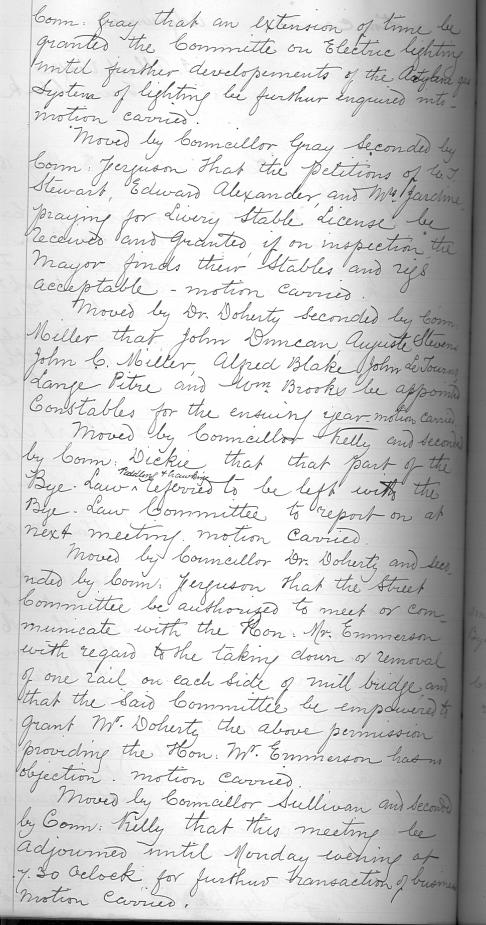 Coun: Gray that an extension of time be
granted the Committee on Electric lighting
until further developements of the gas
System of lighting be further enquired into -
motion carried.
Moved by Councillor Gray Seconded by
Coun: Ferguson that the Petitions of
Stewart, Edward Alexander, and Mrs Jardine
praying for Livery Stable License be
received and granted, if on inspection the
Mayor finds their Stables and rigs
acceptable - motion carried.
Moved by Dr. Doherty seconded by Coun.
Miller that John Duncan, Auguste Stevens
John C. Miller, Alfred Blake John LeTourn
Lange Pitre and Wm. Brooks be appointed
Constables for the ensuing year - motion carried
Moved by Councillor Kelly and seconded
by Coun: Dickie that that part of the
Peddling & Hawking
Bye-Law referred to be left with the
Bye-Law Committee to report on at
next meeting. motion carried.
Moved by Councillor Dr. Doherty and seco-
nded by Coun: Ferguson that the Street
Committee be authorized to meet or com-
municate with the Hon: Mr. Emmerson
with regard to the taking down or removal
of one rail on each side of mill bridge, and
that the said Committee be empowered to
grant Mr. Doherty the above permission
providing the Hon: Mr. Emmerson has no
objection. motion carried.
Moved by Councillor Sullivan and seconded
by Coun: Kelly that this meeting be
adjourned until Monday evening at
7.30 Oclock for further transaction of business
Motion Carried.